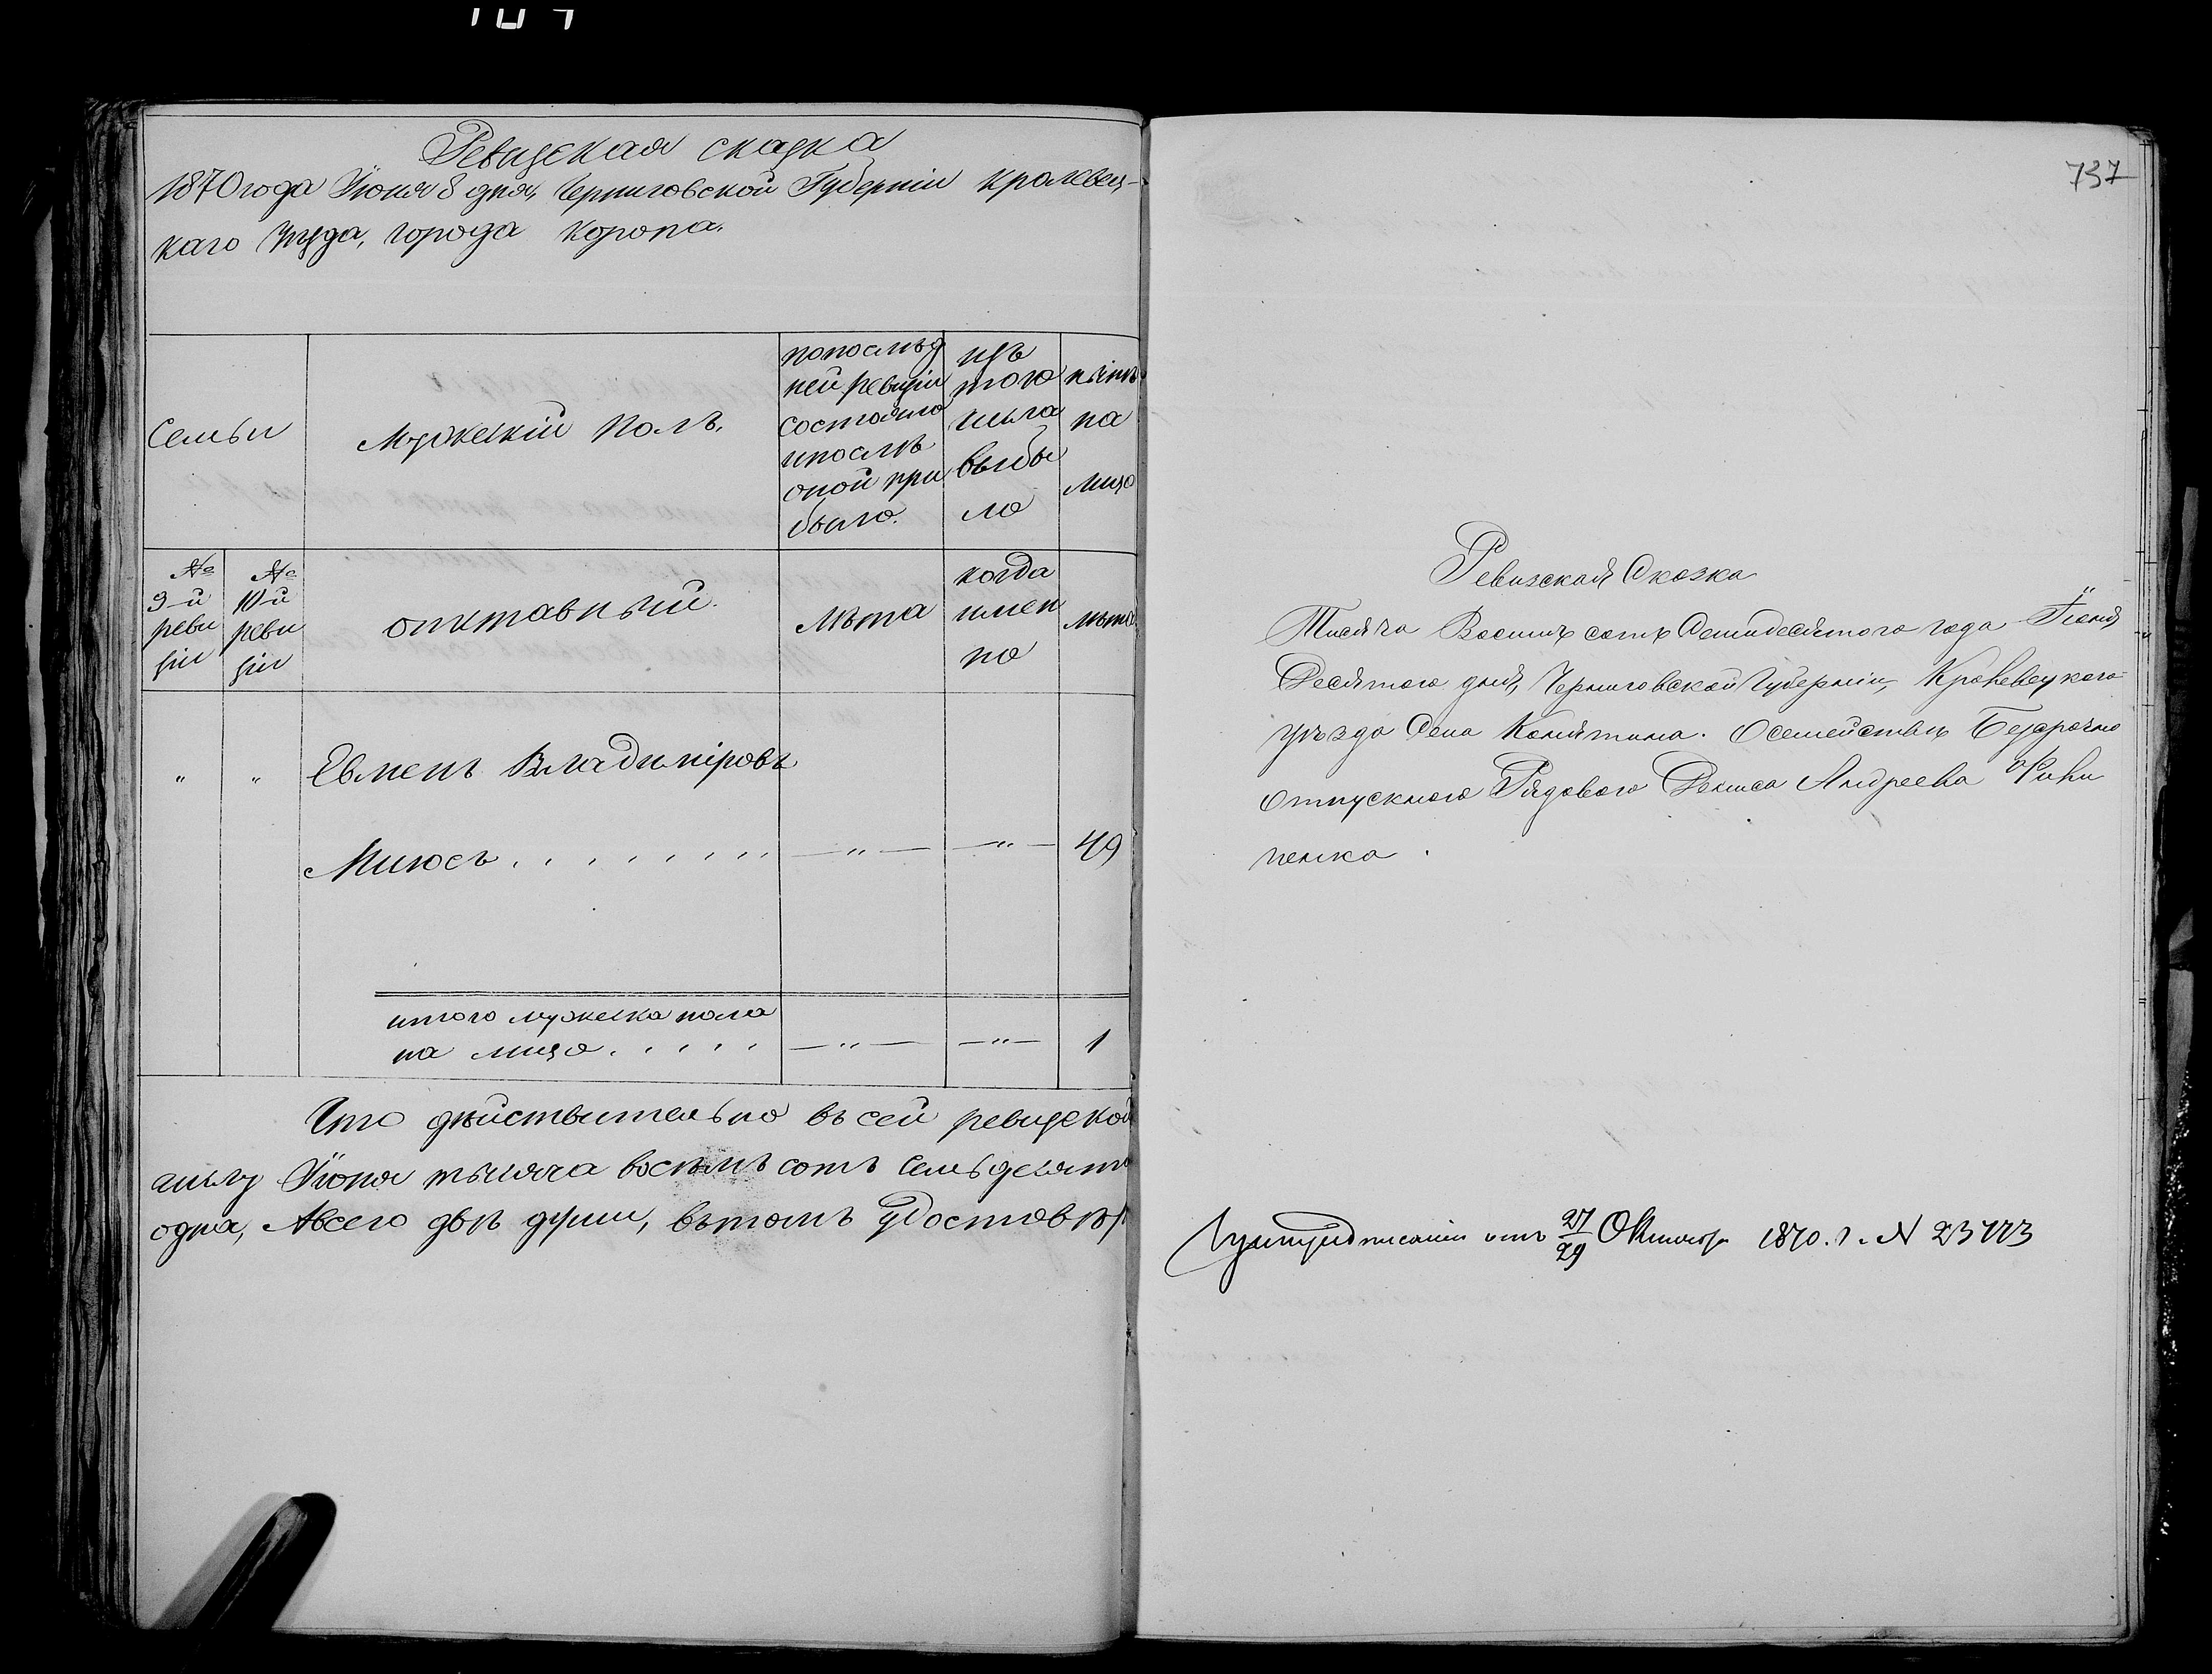 Ревизская сказка
1870 года Іюня 8 дня, Черниговской Губерніи Кролевец-
каго Уезда, города Коропа.
Семьи
Мужескій Полъ.
попослѣд
ней ревизіи
состояло
ипослѣ
оной при
было.
изъ
того
числа
выбы
ло
нынѣ
на
лицо
№
9-й
реви
зіи
№
10-й
реви
зіи
оппставный.
Лѣта
когда
имен
но
лѣта
" " Евменъ Владиміровъ
Миюсъ — " — — " — 49
итого мужеска пола
на лицо — " — — " — 1
Что дѣйствительно въ сей ревизской
Іюня тысяча восемъ сотъ семьдесято
одна, Авсего двѣ души, вътомъ Удостовѣр
737
Ревизская Сказка
Тисяча Восимъ сотъ Семидесятого года Іюня
Десятого дня, Черниговской Губерніи, Кролевецкого
уѣзда Села Конятина. Осемействѣ Безсрочно
отпускного Рядового Дениса Андреева
ченка.
отъ 27/29 Октября 1870. г. N 23773